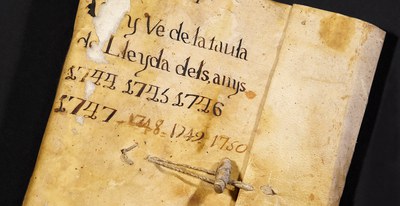 y Ve de la taula
de Lleyda dels, anys.
1744 1745 1746
1747 - 1748 - 1749, 1750